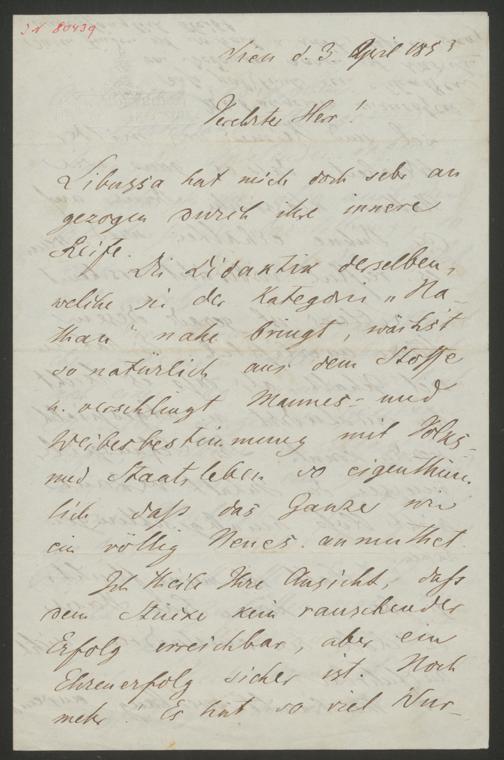 J.N. 80439
Wien d. 3. April 1853
Verehrter Herr!
Libussa hat mich doch sehr an
gezogen durch ihre innere
Reife.
Die Didaktik derselben,
welche sie der Kategorie „Na-
than" nahe bringt, wächst
so natürlich aus dem Stoffe
u. verschlingt Mannes- und
Weibesbestimmung mit Volks-
und Staatsleben so eigenthüm-
lich daß das Ganze wie
ein völlig Neues anmuthet.
Ich theile Ihre Ansicht, daß
dem Stücke kein rauschender
Erfolg erreichbar, aber ein
Ehrenerfolg sicher ist. Noch
mehr! Es hat so viel Wur-